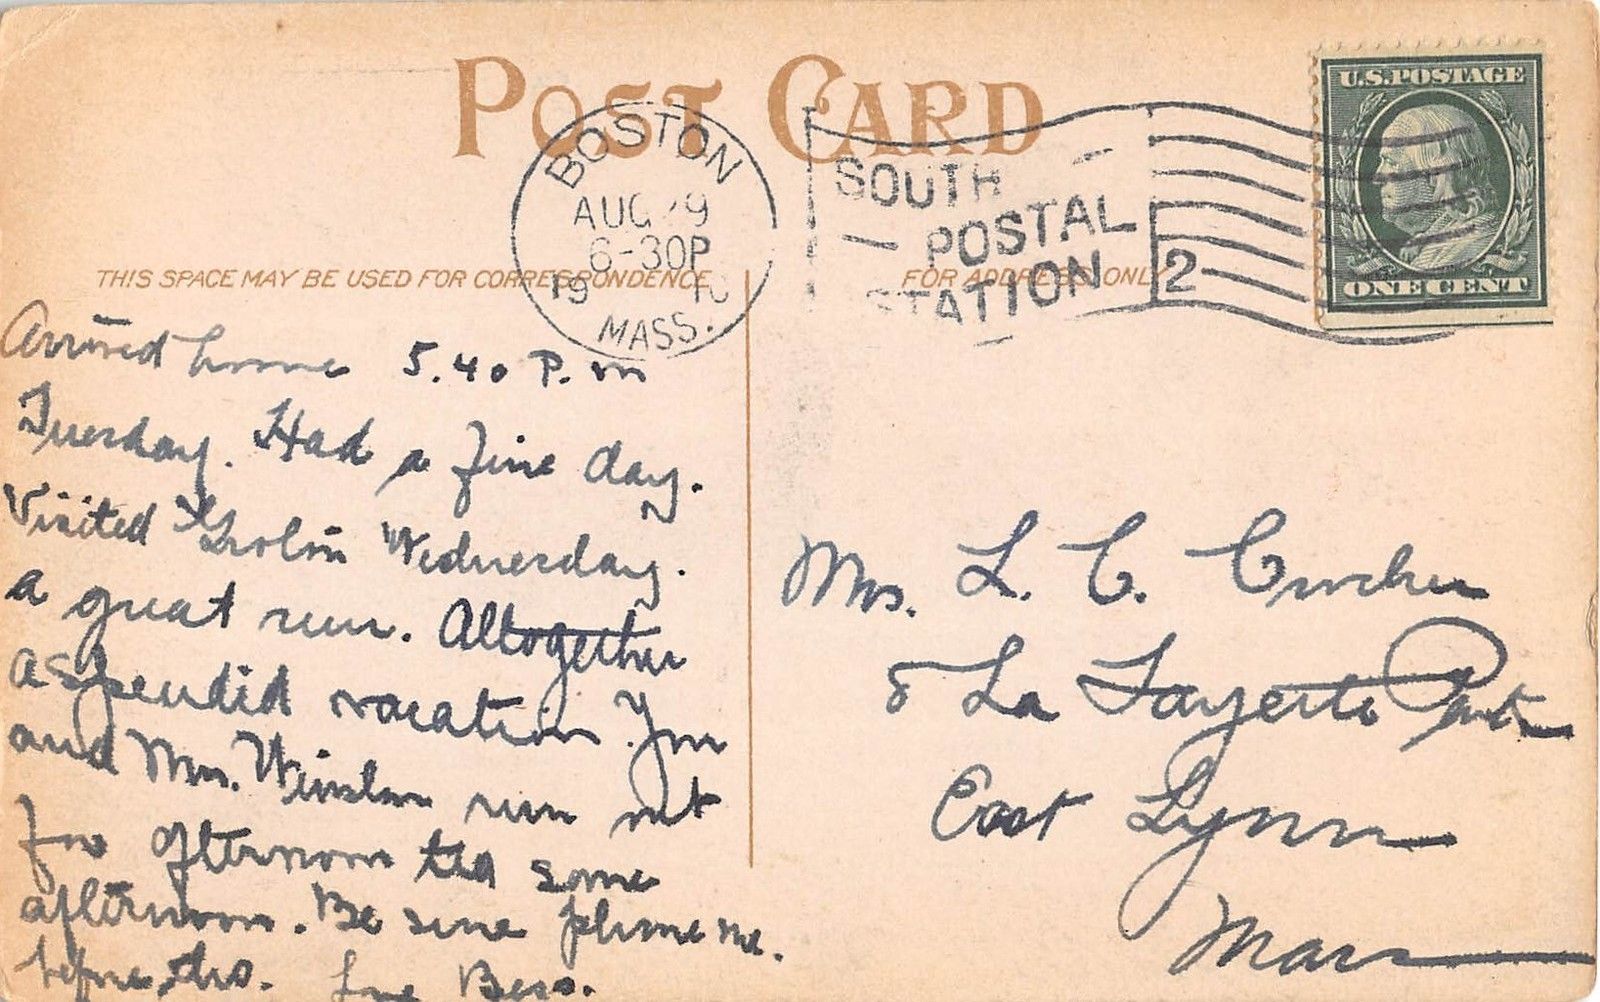 POST CARD
BOSTON
AUG 29
6-30P
1910
MASS.
SOUTH
POSTAL
STATION
2
U.S. POSTAGE
ONE CENT
THIS SPACE MAY BE USED FOR CORRESPONDENCE
FOR ADDRESS ONLY
Arrived home 5.40 P.m
Tuesday. Had a fine day.
Visited Wednesday.
a great run. Altogether
a splendid vacation. You
and Mrs. Winslow run out
for afternoon tea some
afternoon. Be sure phone me.
before, Love Bess.
Mrs. L. C.
8 La Fayette Park
East Lynn
Mass